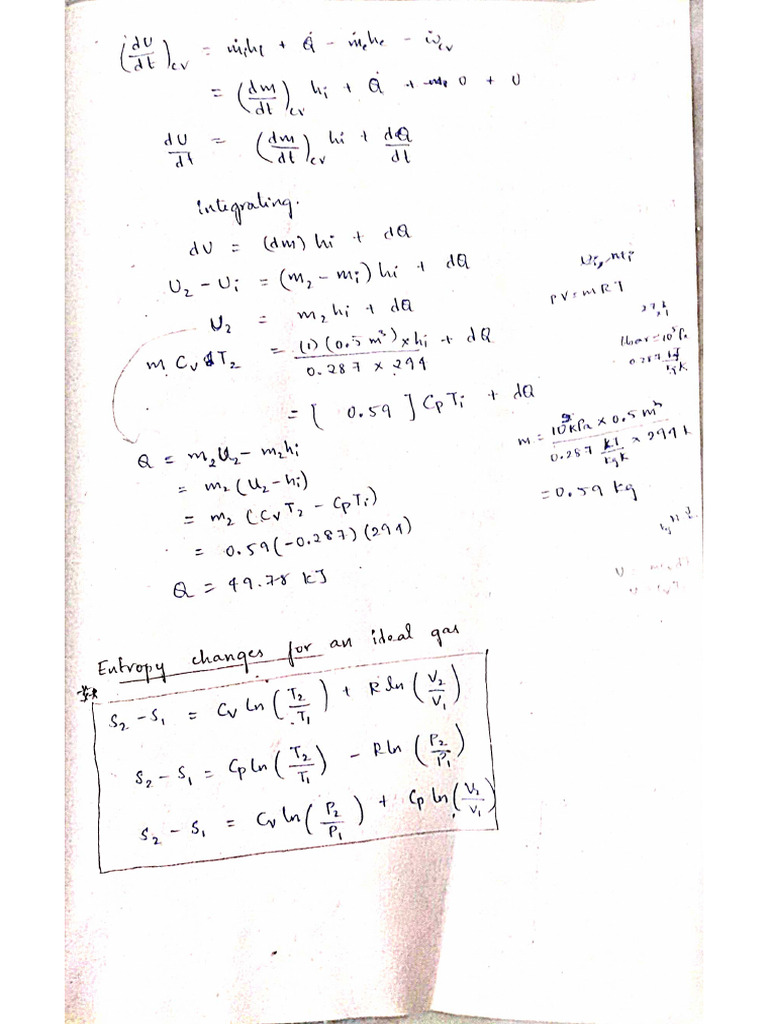 (dU/dt)cv = ṁihi + Q̇ − ṁehe − ẇcv
= (dm/dt)cv hi + Q̇ + 0 + 0
dU/dt = (dm/dt)cv hi + dQ/dt
integrating.
dU = (dm) hi + dQ
U2 − Ui = (m2 − mi) hi + dQ
U2 = m2hi + dQ
m Cv T2 = (1)(0.5 m³) × hi / 0.287 × 294 + dQ
= [ 0.59 ] CpTi + dQ
Q = m2U2 − m2hi
= m2 (U2 − hi)
= m2 (CvT2 − CpTi)
= 0.59(−0.287)(294)
Q = 49.78 kJ
Ui, mi
PV = mRT
1bar = 10⁵Pa
0.287 kJ/kgK
m = 10² kPa × 0.5 m³ / 0.287 kJ/kgK × 294 k
= 0.59 kg
Entropy changes for an ideal gas
S2 − S1 = Cv ln (T2/T1) + R ln (V2/V1)
S2 − S1 = Cp ln (T2/T1) − R ln (P2/P1)
S2 − S1 = Cv ln (P2/P1) + Cp ln (V2/V1)